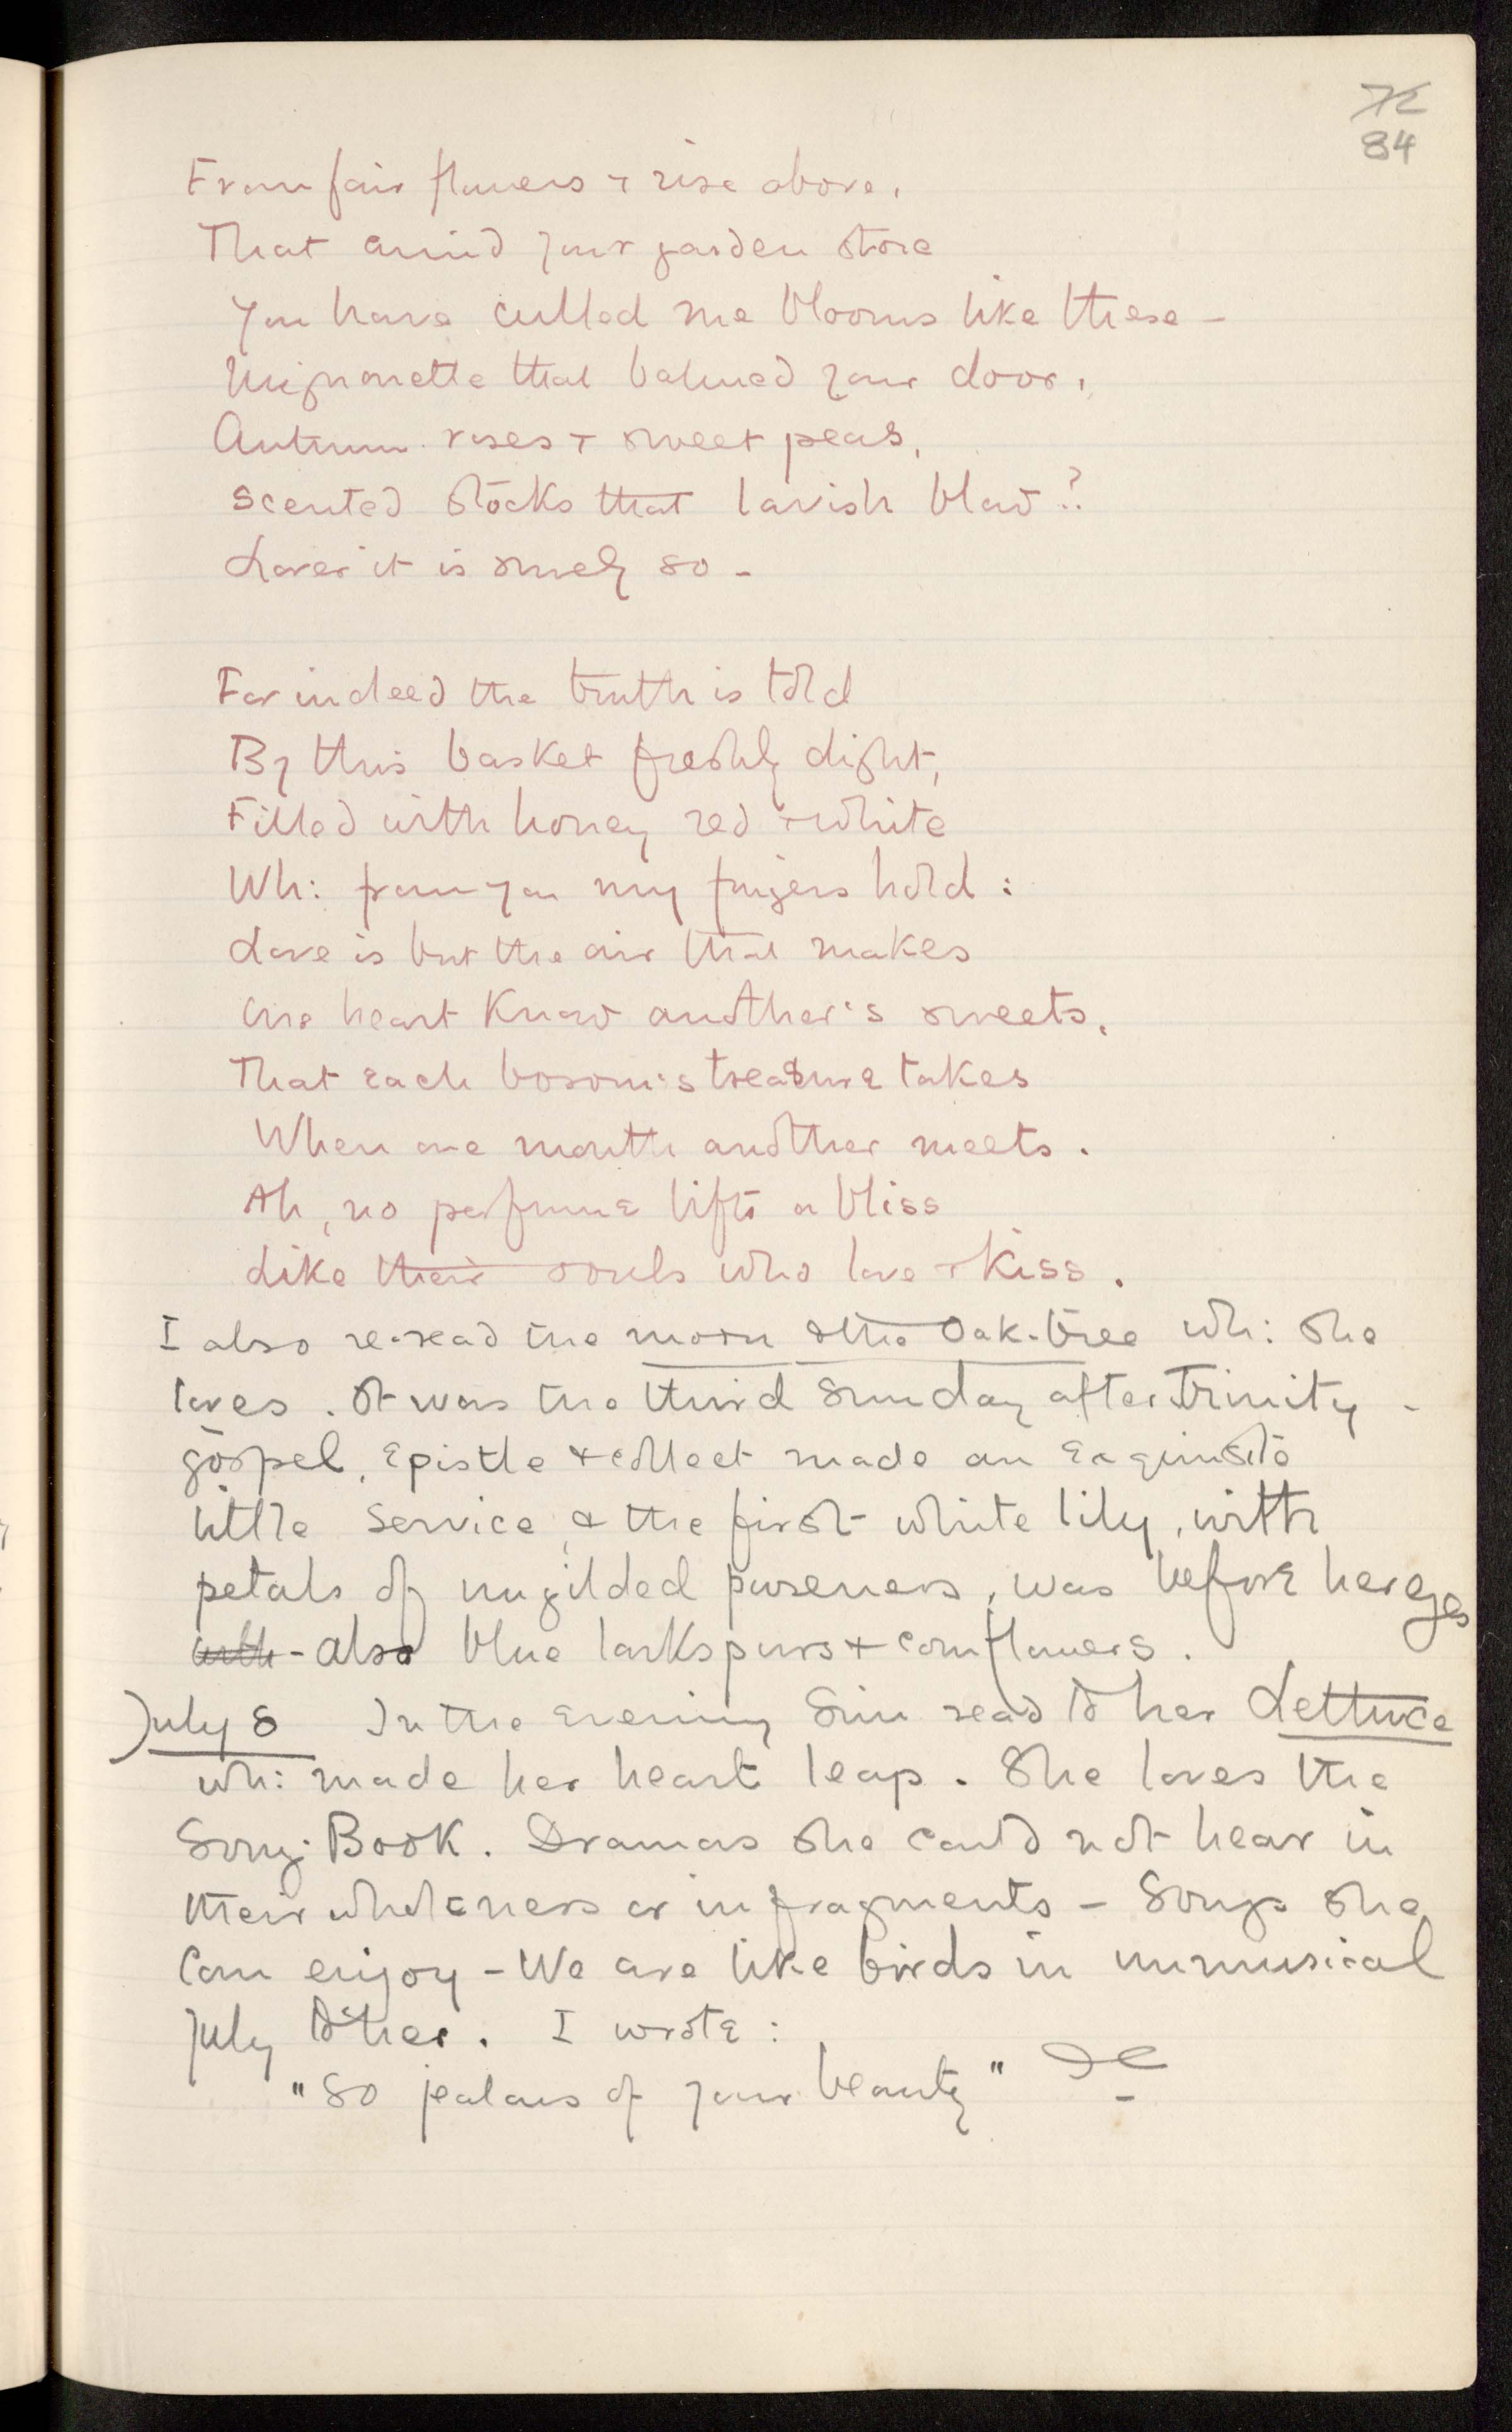 72
84
From fair flowers & rise above,
That amid your garden store
You have culled me blooms like these –
Mignonette that balmed your door,
Autumn roses & sweet peas,
Scented stocks that lavish blow?
Lover it is surely so –
For indeed the truth is told
By this basket freshly dight,
Filled with honey red & white
Wh: from you my fingers hold:
Love is but the air that makes
One heart know another's sweets,
That each bosom's treasure takes
When one mouth another meets.
Ah, no perfume lifts a bliss
Like their souls who love & kiss.
I also re-read the moon & the Oak-tree wh: she
loves. It was the third Sunday after Trinity –
gospel, Epistle & collect made an exquisite
little service & the first white lily, with
petals of ungilded pureness, was before her eyes
with – also blue larkspurs & cornflowers.
July 8 In the evening Sim read to her Lettuce
wh: made her heart leap. She loves the
Song-Book. Dramas she could not hear in
their wholeness or in fragments – Songs she
can enjoy – We are like birds in unmusical
July to her. I wrote:
"So jealous of your beauty"